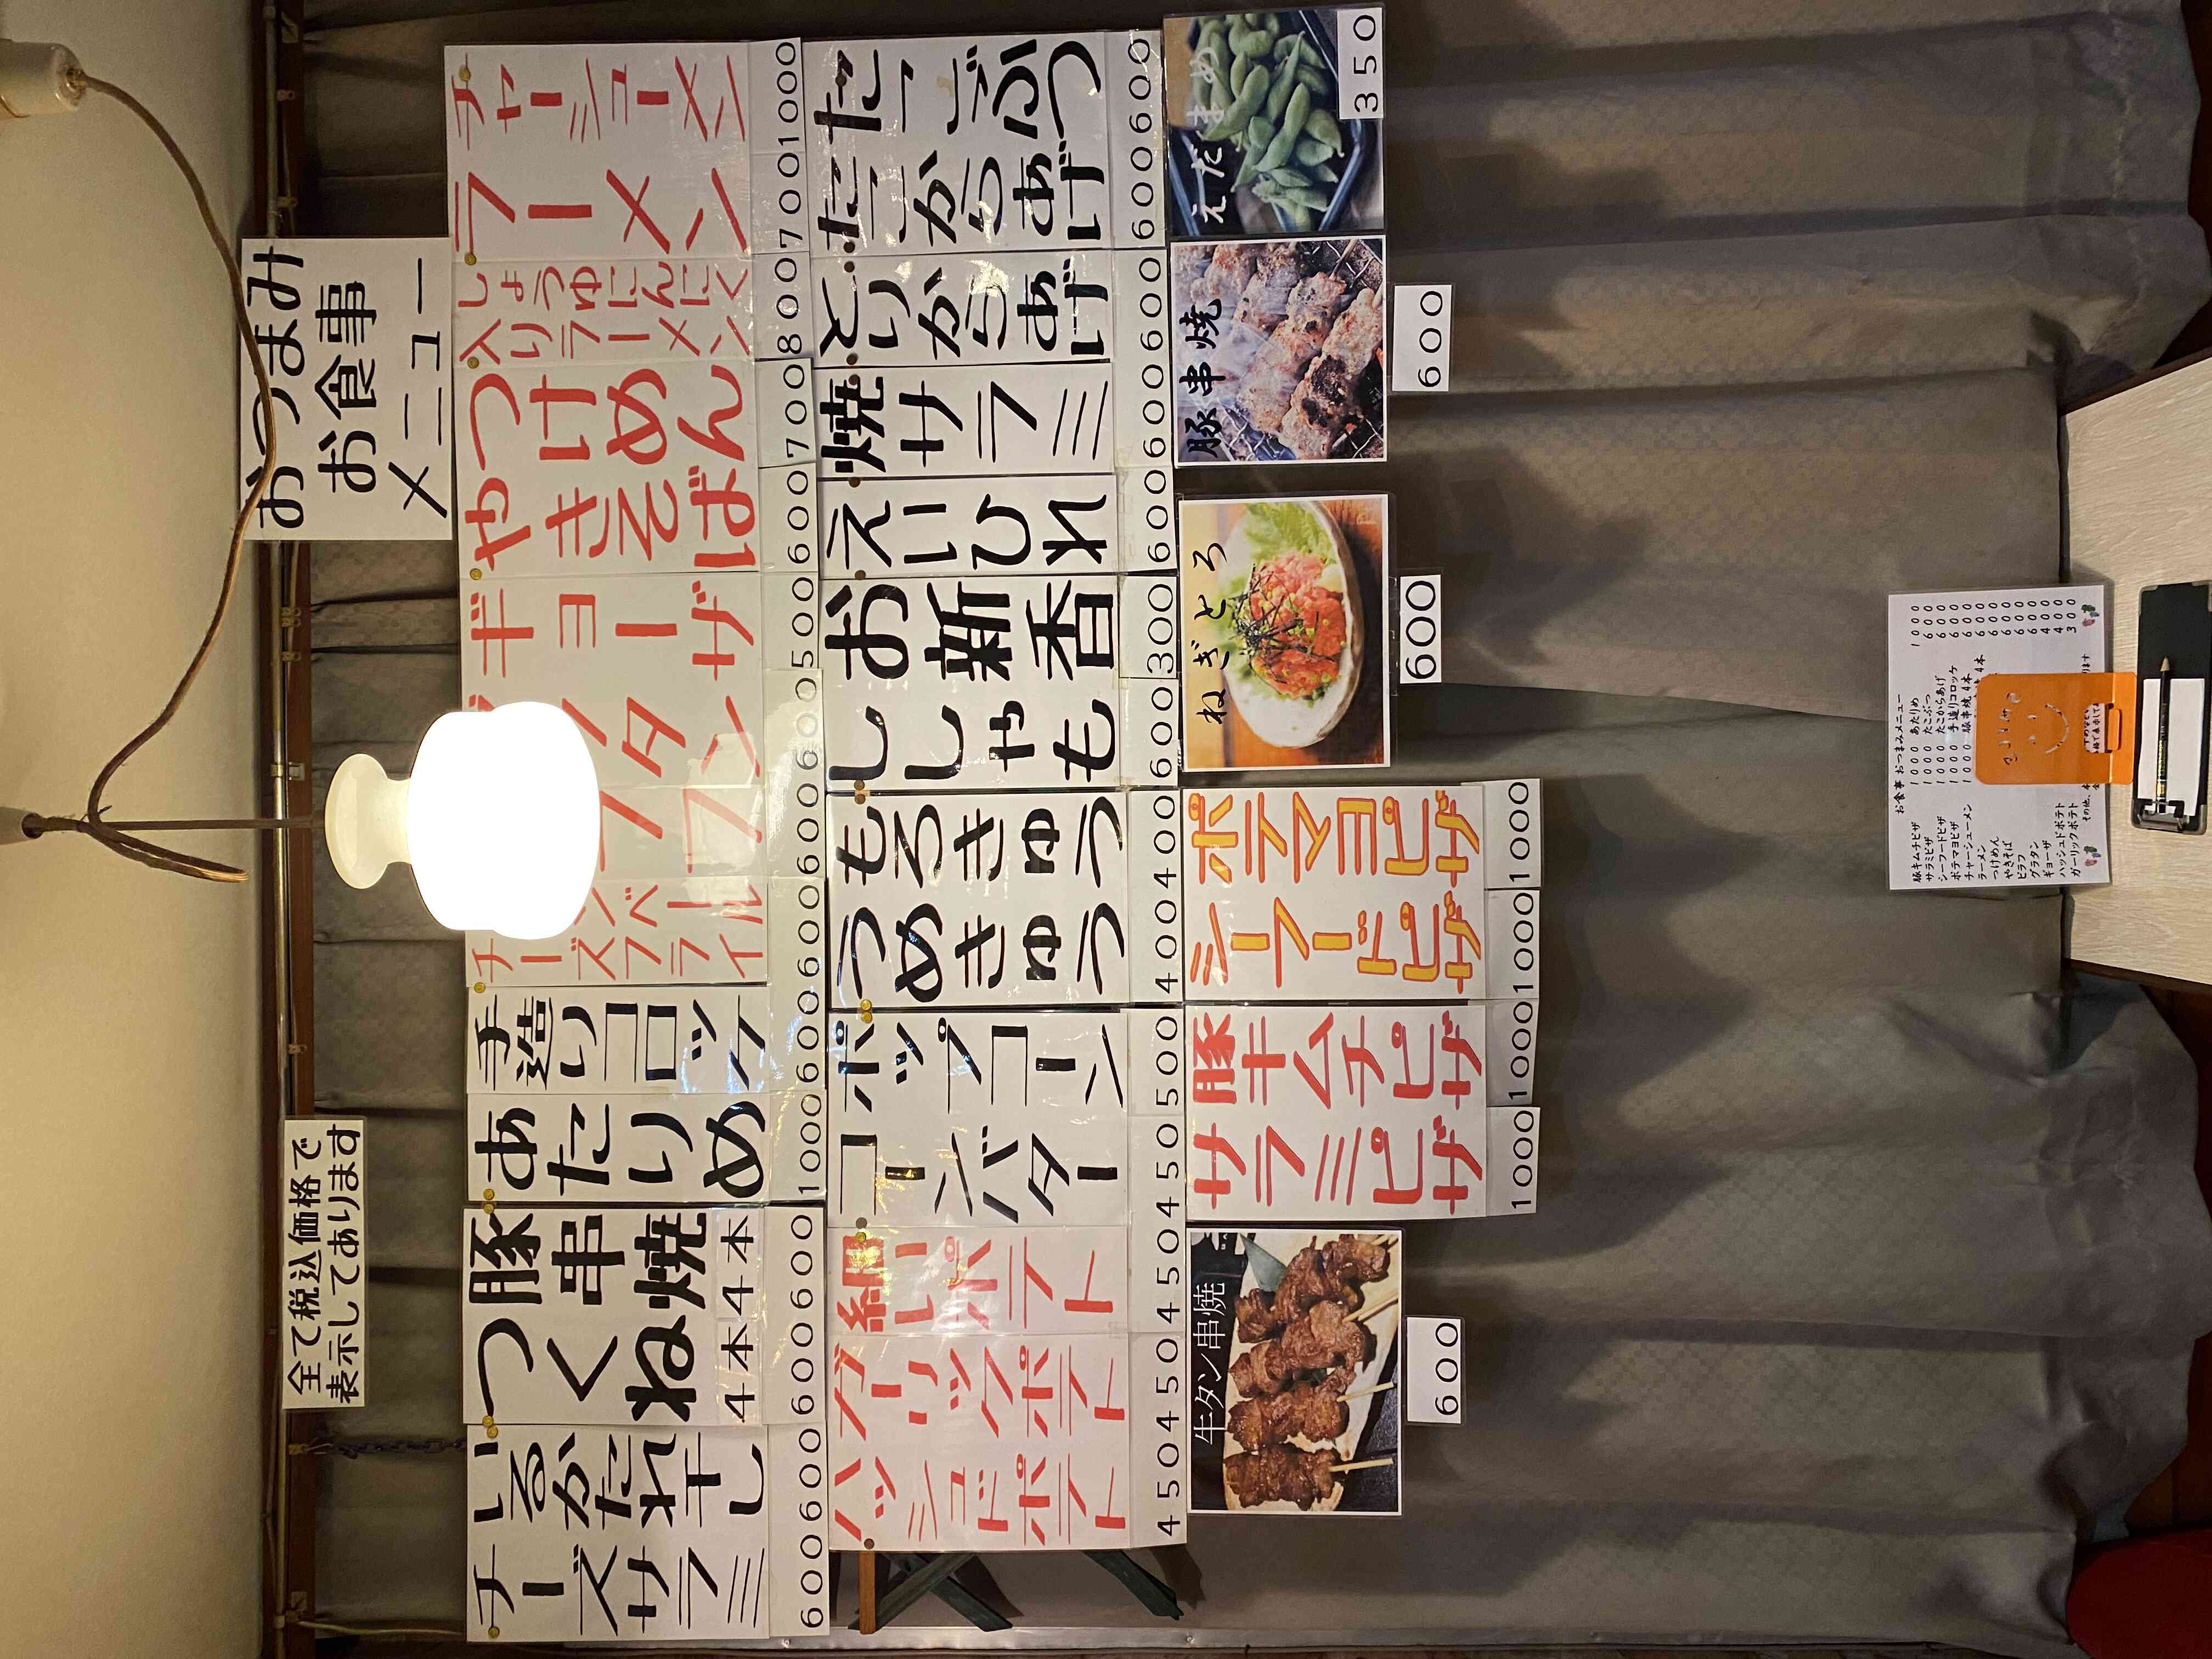 全て税込価格で
表示してあります
おつまみ
お食事
メニュー
チャーシューメン
1000
ラーメン
700
しょうゆにんにく
入りラーメン
800
つけめん
700
やきそば
600
ギョーザ
500
タン
600
フ
600
ベール
チーズフライ
600
手造りコロッケ
600
あたりめ
1000
豚串焼
4本
600
つくね
4本
600
いるかたれ干し
600
チーズサラミ
600
たこぶつ
600
たこからあげ
600
とりからあげ
600
焼サラミ
600
えいひれ
600
お新香
300
ししゃも
600
もろきゅう
400
うめきゅう
400
ポップコーン
500
コーンバター
450
細いポテト
450
ガーリックポテト
450
ハッシュドポテト
450
えだまめ
350
豚串焼
600
ねぎとろ
600
ポテマヨピザ
1000
シーフードピザ
1000
豚キムチピザ
1000
サラミピザ
1000
牛タン串焼
600
お食事 おつまみメニュー
豚キムチピザ 1000
サラミピザ 1000
シーフードピザ 1000
ポテマヨピザ 1000
チャーシューメン 1000
ラーメン
つけめん
やきそば
ピラフ
グラタン
ギョーザ
ハッシュドポテト
ガーリックポテト
あたりめ 1000
たこぶつ 600
たこからあげ 600
手造りコロッケ 600
豚串焼 4本 600
4本 600
600
600
600
600
400
400
300
その他、